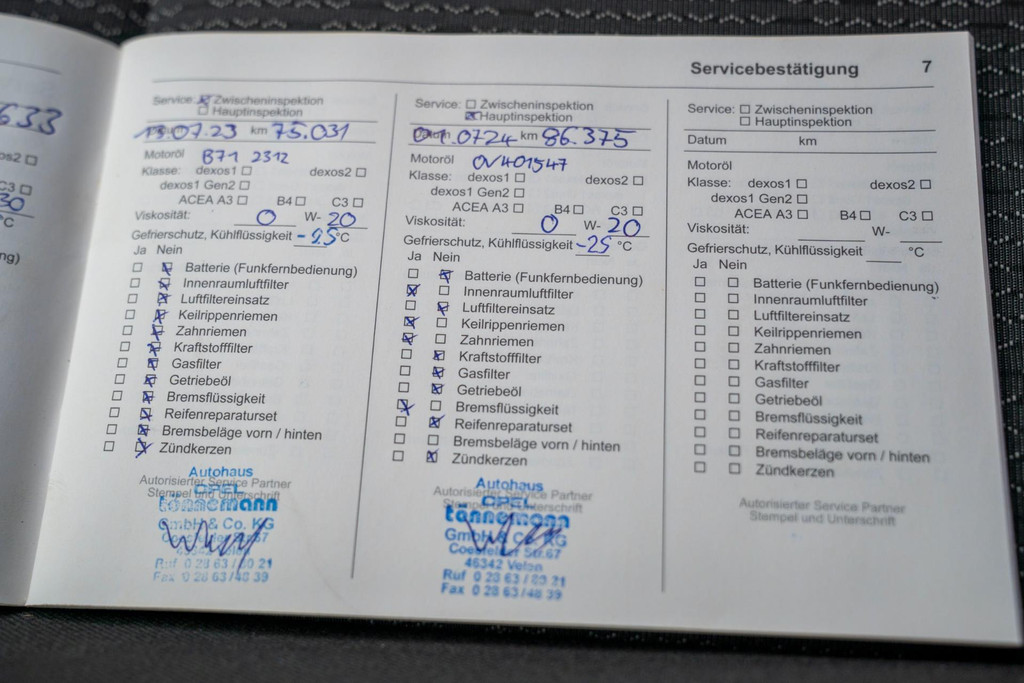 633
os2 ☐
C3 ☐
30
°C
ng)
Servicebestätigung 7
Service: ☒ Zwischeninspektion
☐ Hauptinspektion
13.07.23 km 75.031
Motoröl B71 2312
Klasse: dexos1 ☐ dexos2 ☐
dexos1 Gen2 ☐
ACEA A3 ☐ B4 ☐ C3 ☐
Viskosität: 0 W- 20
Gefrierschutz, Kühlflüssigkeit -25 °C
Ja Nein
☐ ☒ Batterie (Funkfernbedienung)
☐ ☒ Innenraumluftfilter
☐ ☒ Luftfiltereinsatz
☐ ☒ Keilrippenriemen
☐ ☒ Zahnriemen
☐ ☒ Kraftstofffilter
☐ ☒ Gasfilter
☐ ☒ Getriebeöl
☐ ☒ Bremsflüssigkeit
☐ ☒ Reifenreparaturset
☐ ☒ Bremsbeläge vorn / hinten
☐ ☒ Zündkerzen
Autorisierter Service Partner
Stempel und Unterschrift
Autohaus
OPEL
tännemann
GmbH & Co. KG
Ruf 0 28 63 / 80 21
Fax 0 28 63 / 48 39
Service: ☐ Zwischeninspektion
☒ Hauptinspektion
Datum 01.0724 km 86.375
Motoröl OV401547
Klasse: dexos1 ☐ dexos2 ☐
dexos1 Gen2 ☐
ACEA A3 ☐ B4 ☐ C3 ☐
Viskosität: 0 W- 20
Gefrierschutz, Kühlflüssigkeit -25 °C
Ja Nein
☐ ☒ Batterie (Funkfernbedienung)
☒ ☐ Innenraumluftfilter
☐ ☒ Luftfiltereinsatz
☒ ☐ Keilrippenriemen
☒ ☐ Zahnriemen
☐ ☒ Kraftstofffilter
☐ ☒ Gasfilter
☐ ☒ Getriebeöl
☒ ☐ Bremsflüssigkeit
☐ ☒ Reifenreparaturset
☐ ☐ Bremsbeläge vorn / hinten
☐ ☒ Zündkerzen
Autorisierter Service Partner
Stempel und Unterschrift
Autohaus
OPEL
tännemann
GmbH & Co. KG
Coesfelder Str. 67
46342 Velen
Ruf 0 28 63 / 80 21
Fax 0 28 63 / 48 39
Service: ☐ Zwischeninspektion
☐ Hauptinspektion
Datum km
Motoröl
Klasse: dexos1 ☐ dexos2 ☐
dexos1 Gen2 ☐
ACEA A3 ☐ B4 ☐ C3 ☐
Viskosität: W-
Gefrierschutz, Kühlflüssigkeit °C
Ja Nein
☐ ☐ Batterie (Funkfernbedienung)
☐ ☐ Innenraumluftfilter
☐ ☐ Luftfiltereinsatz
☐ ☐ Keilrippenriemen
☐ ☐ Zahnriemen
☐ ☐ Kraftstofffilter
☐ ☐ Gasfilter
☐ ☐ Getriebeöl
☐ ☐ Bremsflüssigkeit
☐ ☐ Reifenreparaturset
☐ ☐ Bremsbeläge vorn / hinten
☐ ☐ Zündkerzen
Autorisierter Service Partner
Stempel und Unterschrift